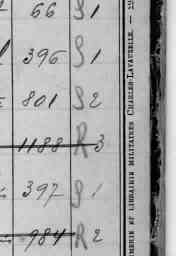 66 S 1
396 S 1
801 S 2
1188 R 3
397 S 1
984 R 2
IMERIE ET LIBRAIRIE MILITAIRES CHARLES-LAVAUZELLE. —